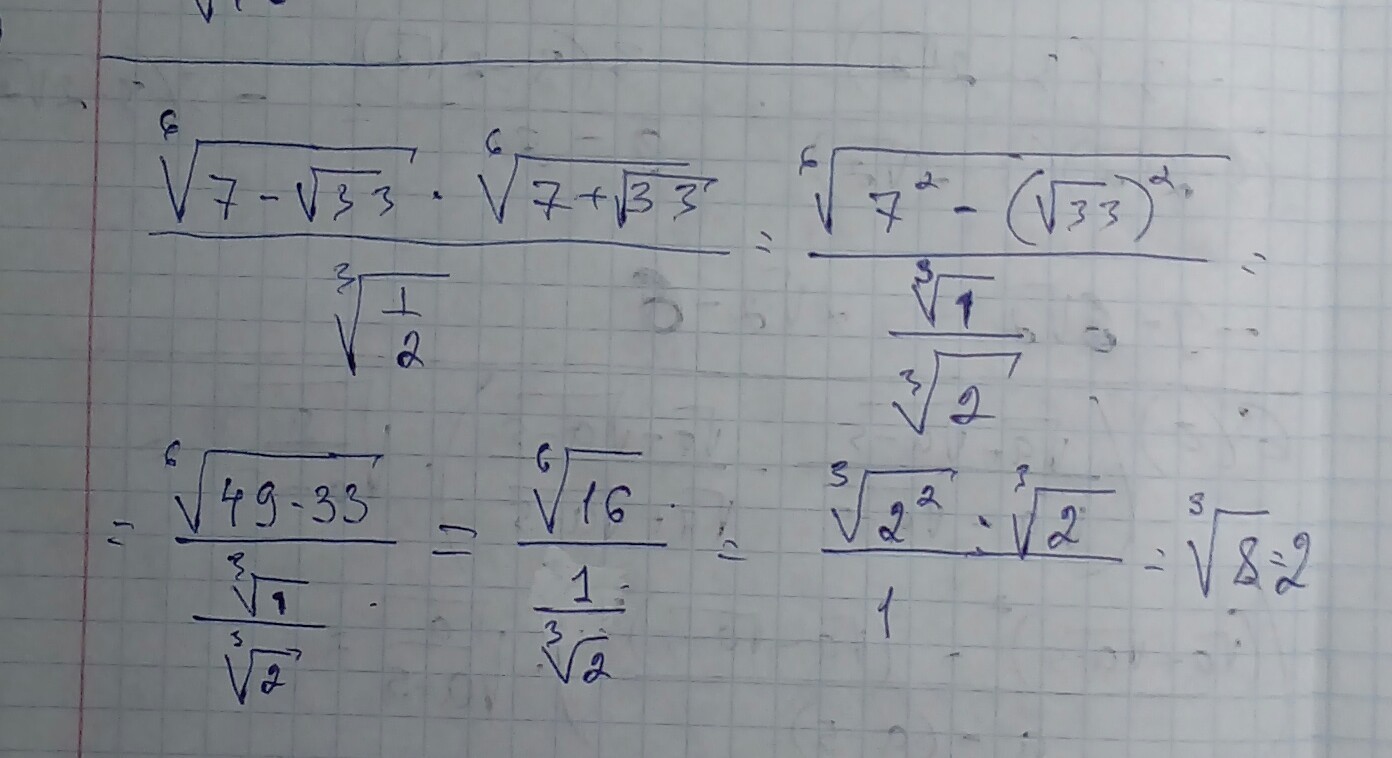 \frac{\sqrt[6]{7-\sqrt{33}} \cdot \sqrt[6]{7+\sqrt{33}}}{\sqrt[3]{\frac{1}{2}}} = \frac{\sqrt[6]{7^2-(\sqrt{33})^2}}{\frac{\sqrt[3]{1}}{\sqrt[3]{2}}} =
= \frac{\sqrt[6]{49-33}}{\frac{\sqrt[3]{1}}{\sqrt[3]{2}}} = \frac{\sqrt[6]{16}}{\frac{1}{\sqrt[3]{2}}} = \frac{\sqrt[3]{2^2} \cdot \sqrt[3]{2}}{1} = \sqrt[3]{8} = 2